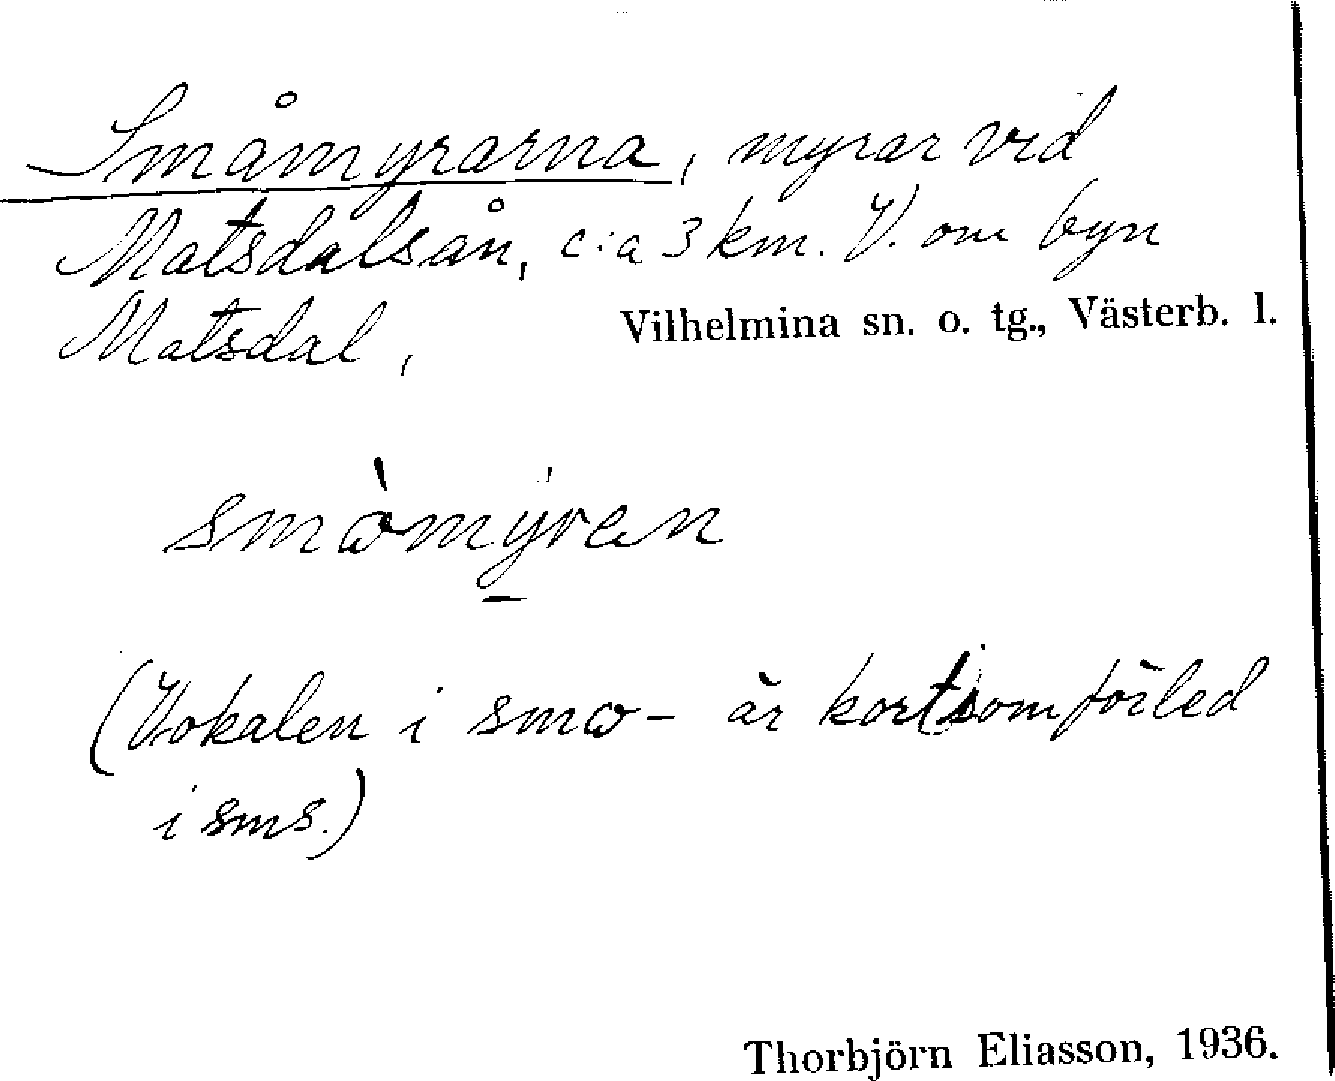 Småmyrarna, myrar vid
Matsdalsån, c:a 3 km. V. om byn
Matsdal, Vilhelmina sn. o. tg., Västerb. l.
smωmyren
(Vokalen i smω- är kort som förled
i sms.)
Thorbjörn Eliasson, 1936.